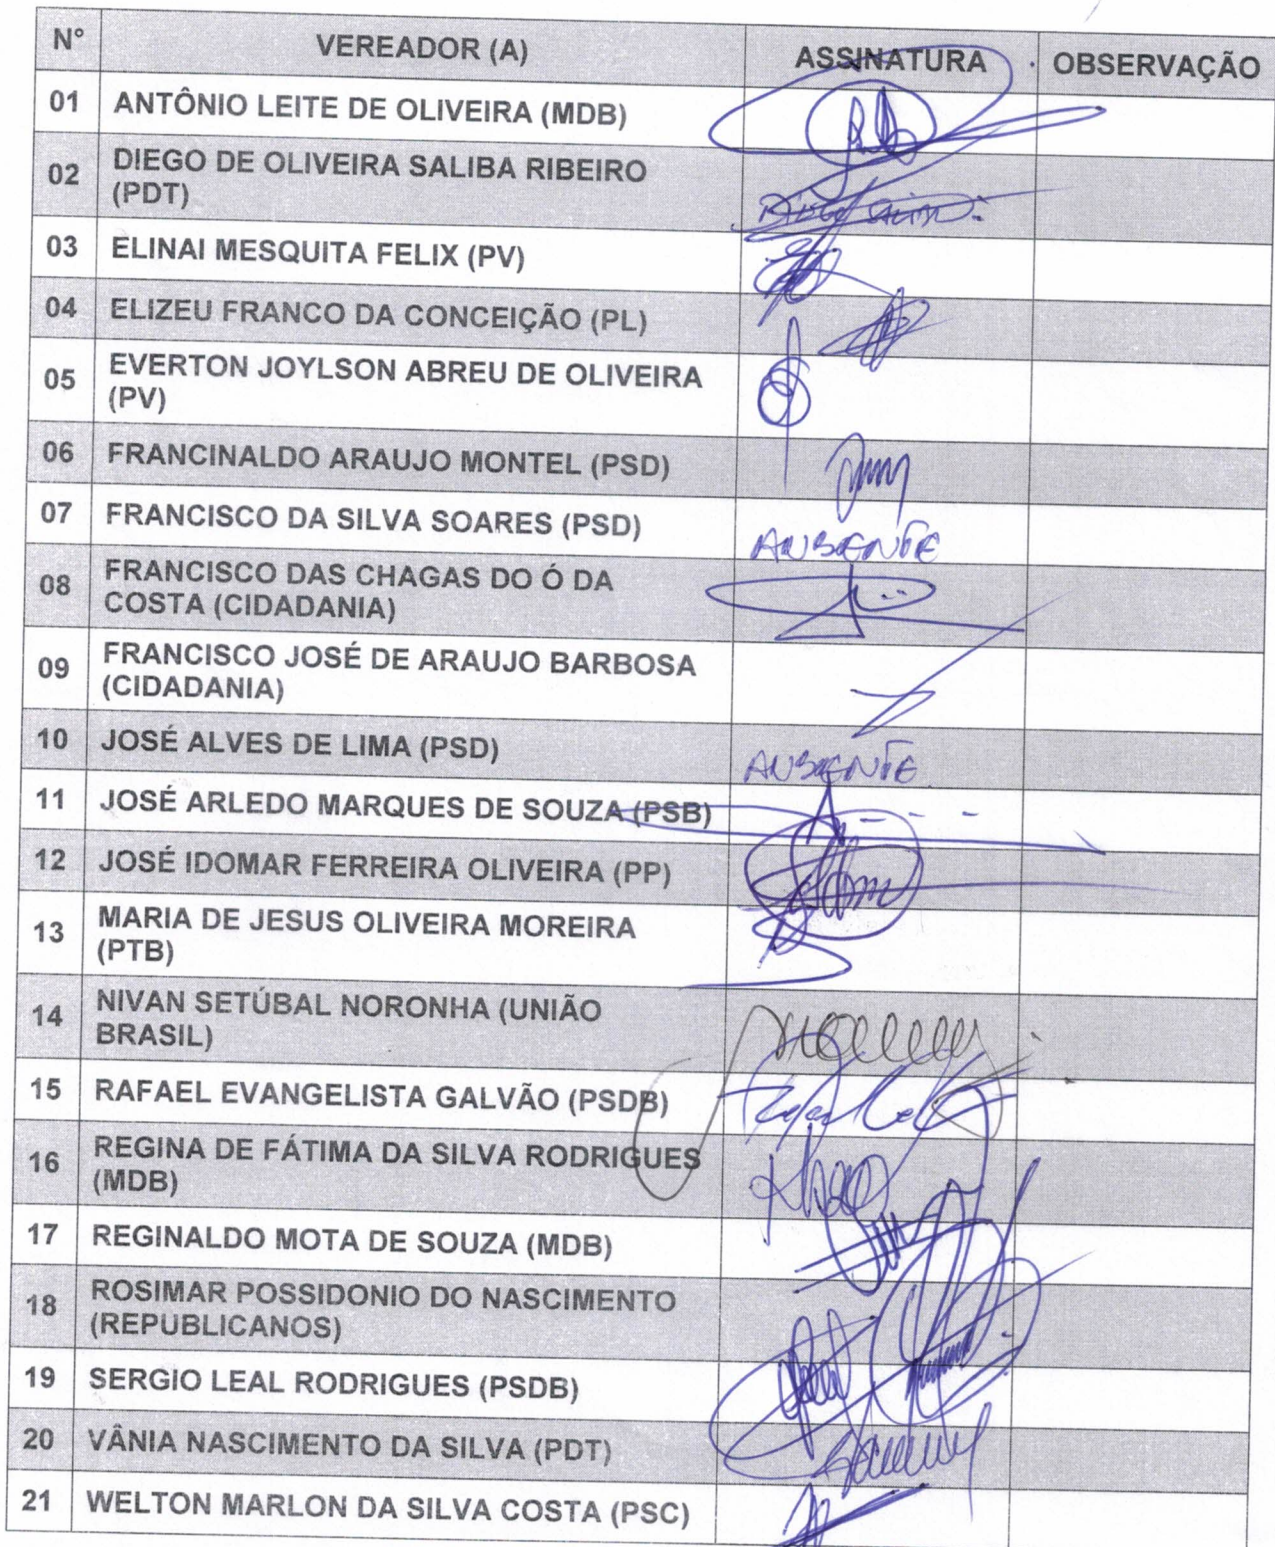 N° VEREADOR (A) ASSINATURA OBSERVAÇÃO
01 ANTÔNIO LEITE DE OLIVEIRA (MDB)
02 DIEGO DE OLIVEIRA SALIBA RIBEIRO
(PDT)
03 ELINAI MESQUITA FELIX (PV)
04 ELIZEU FRANCO DA CONCEIÇÃO (PL)
05 EVERTON JOYLSON ABREU DE OLIVEIRA
(PV)
06 FRANCINALDO ARAUJO MONTEL (PSD)
07 FRANCISCO DA SILVA SOARES (PSD) AUSENTE
08 FRANCISCO DAS CHAGAS DO Ó DA
COSTA (CIDADANIA)
09 FRANCISCO JOSÉ DE ARAUJO BARBOSA
(CIDADANIA)
10 JOSÉ ALVES DE LIMA (PSD) AUSENTE
11 JOSÉ ARLEDO MARQUES DE SOUZA (PSB)
12 JOSÉ IDOMAR FERREIRA OLIVEIRA (PP)
13 MARIA DE JESUS OLIVEIRA MOREIRA
(PTB)
14 NIVAN SETÚBAL NORONHA (UNIÃO
BRASIL)
15 RAFAEL EVANGELISTA GALVÃO (PSDB)
16 REGINA DE FÁTIMA DA SILVA RODRIGUES
(MDB)
17 REGINALDO MOTA DE SOUZA (MDB)
18 ROSIMAR POSSIDONIO DO NASCIMENTO
(REPUBLICANOS)
19 SERGIO LEAL RODRIGUES (PSDB)
20 VÂNIA NASCIMENTO DA SILVA (PDT)
21 WELTON MARLON DA SILVA COSTA (PSC)